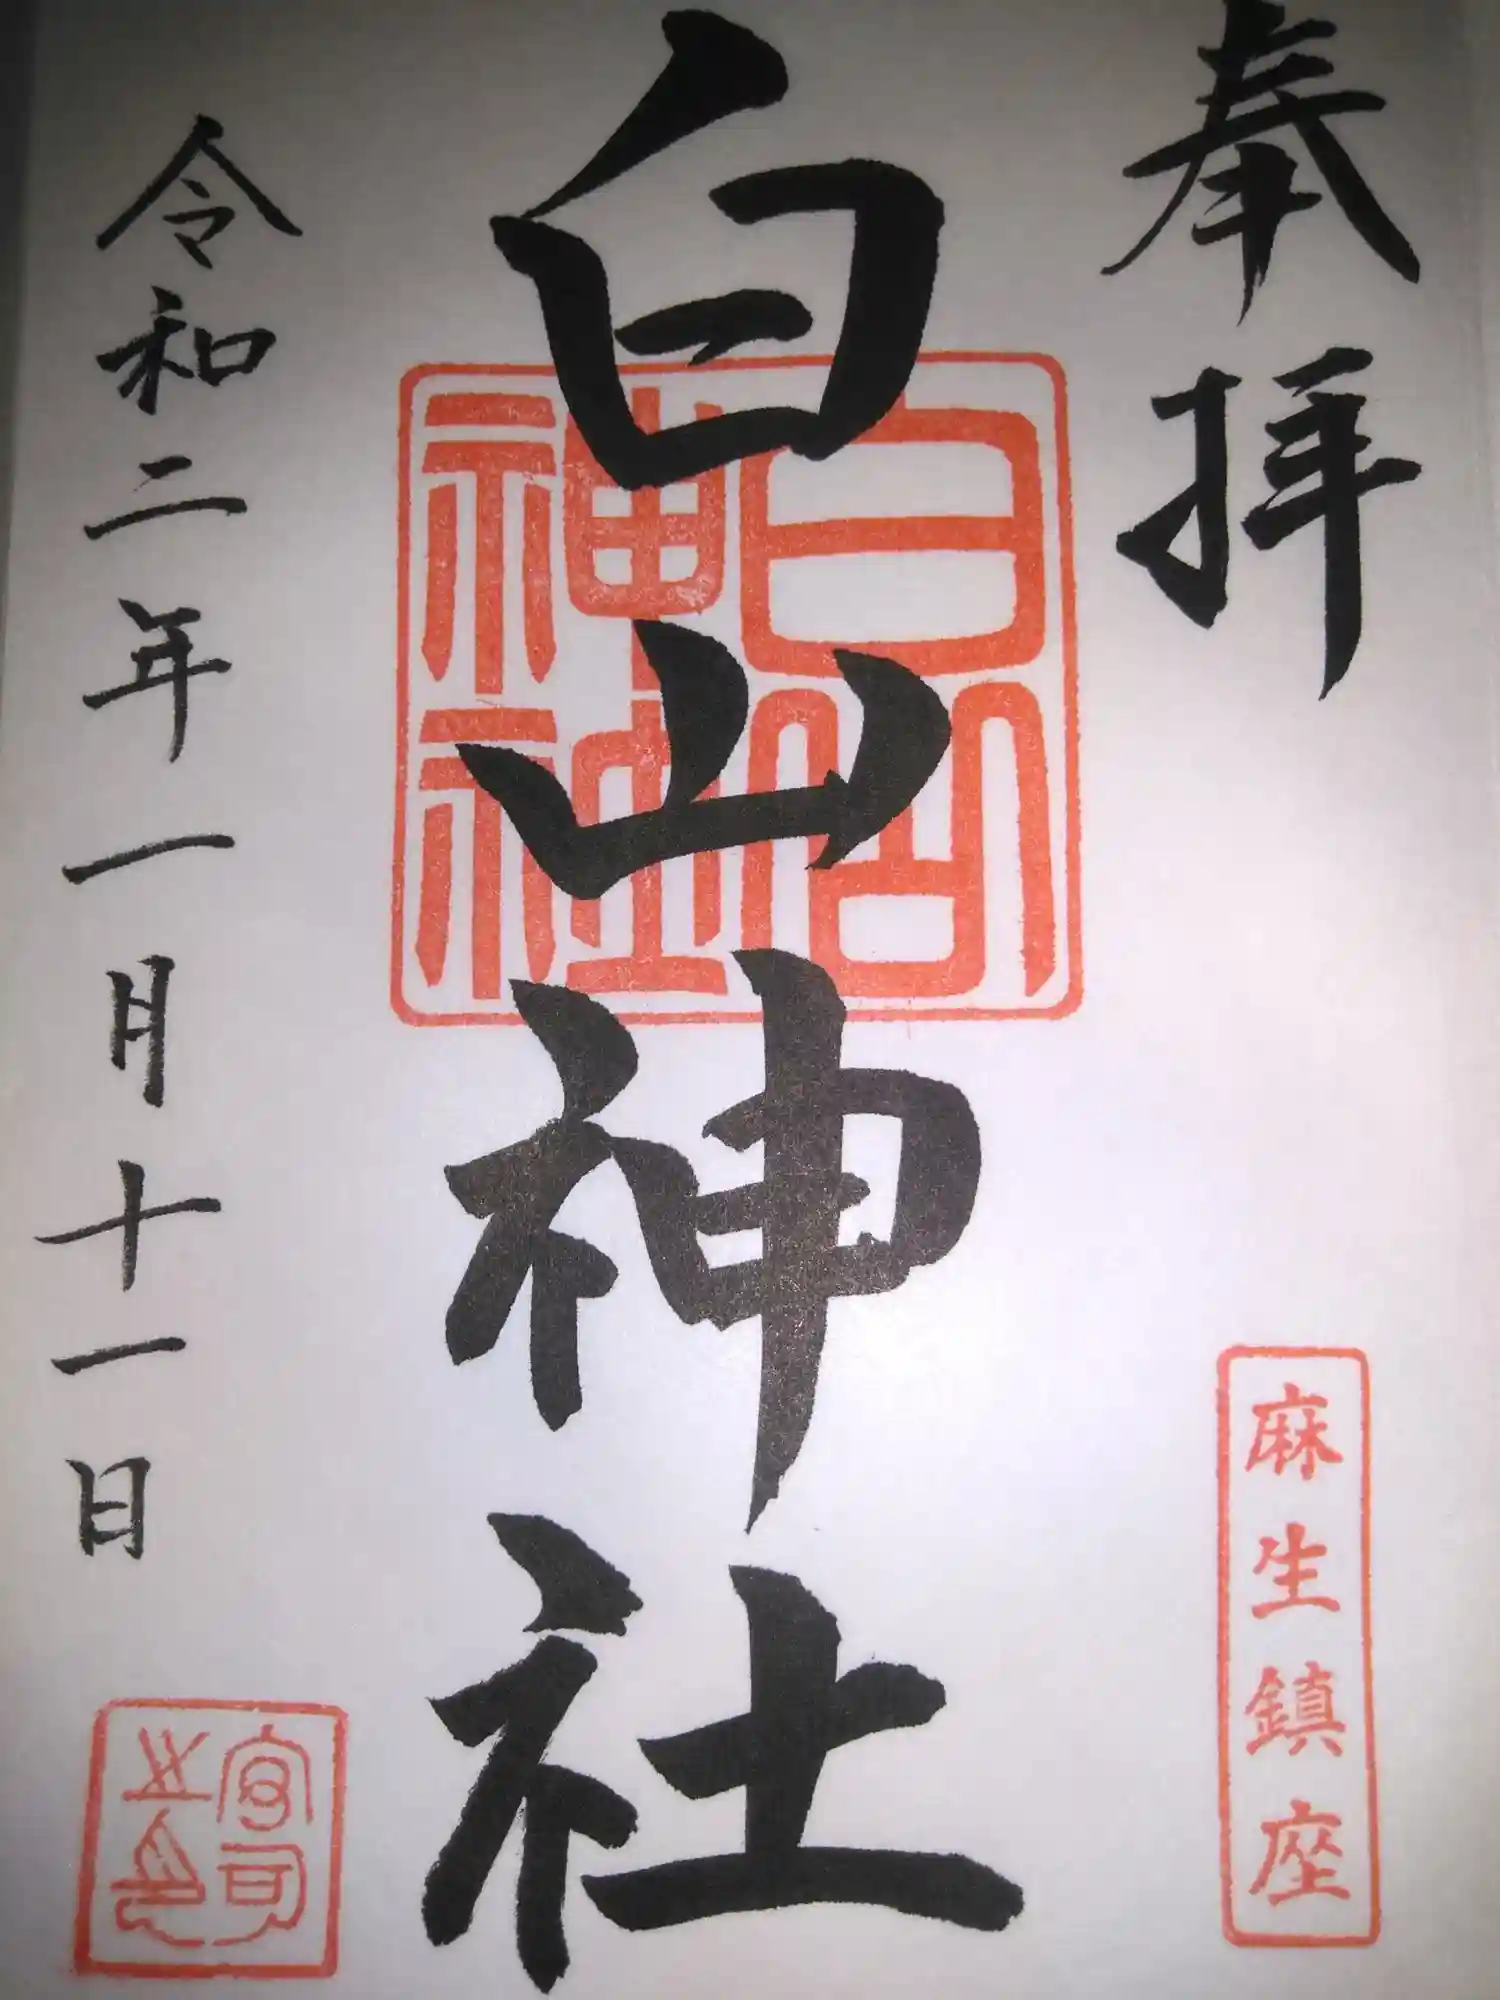 奉拝
麻生鎮座
白山神社
白山
神社
令和二年一月十一日
宮司
之印